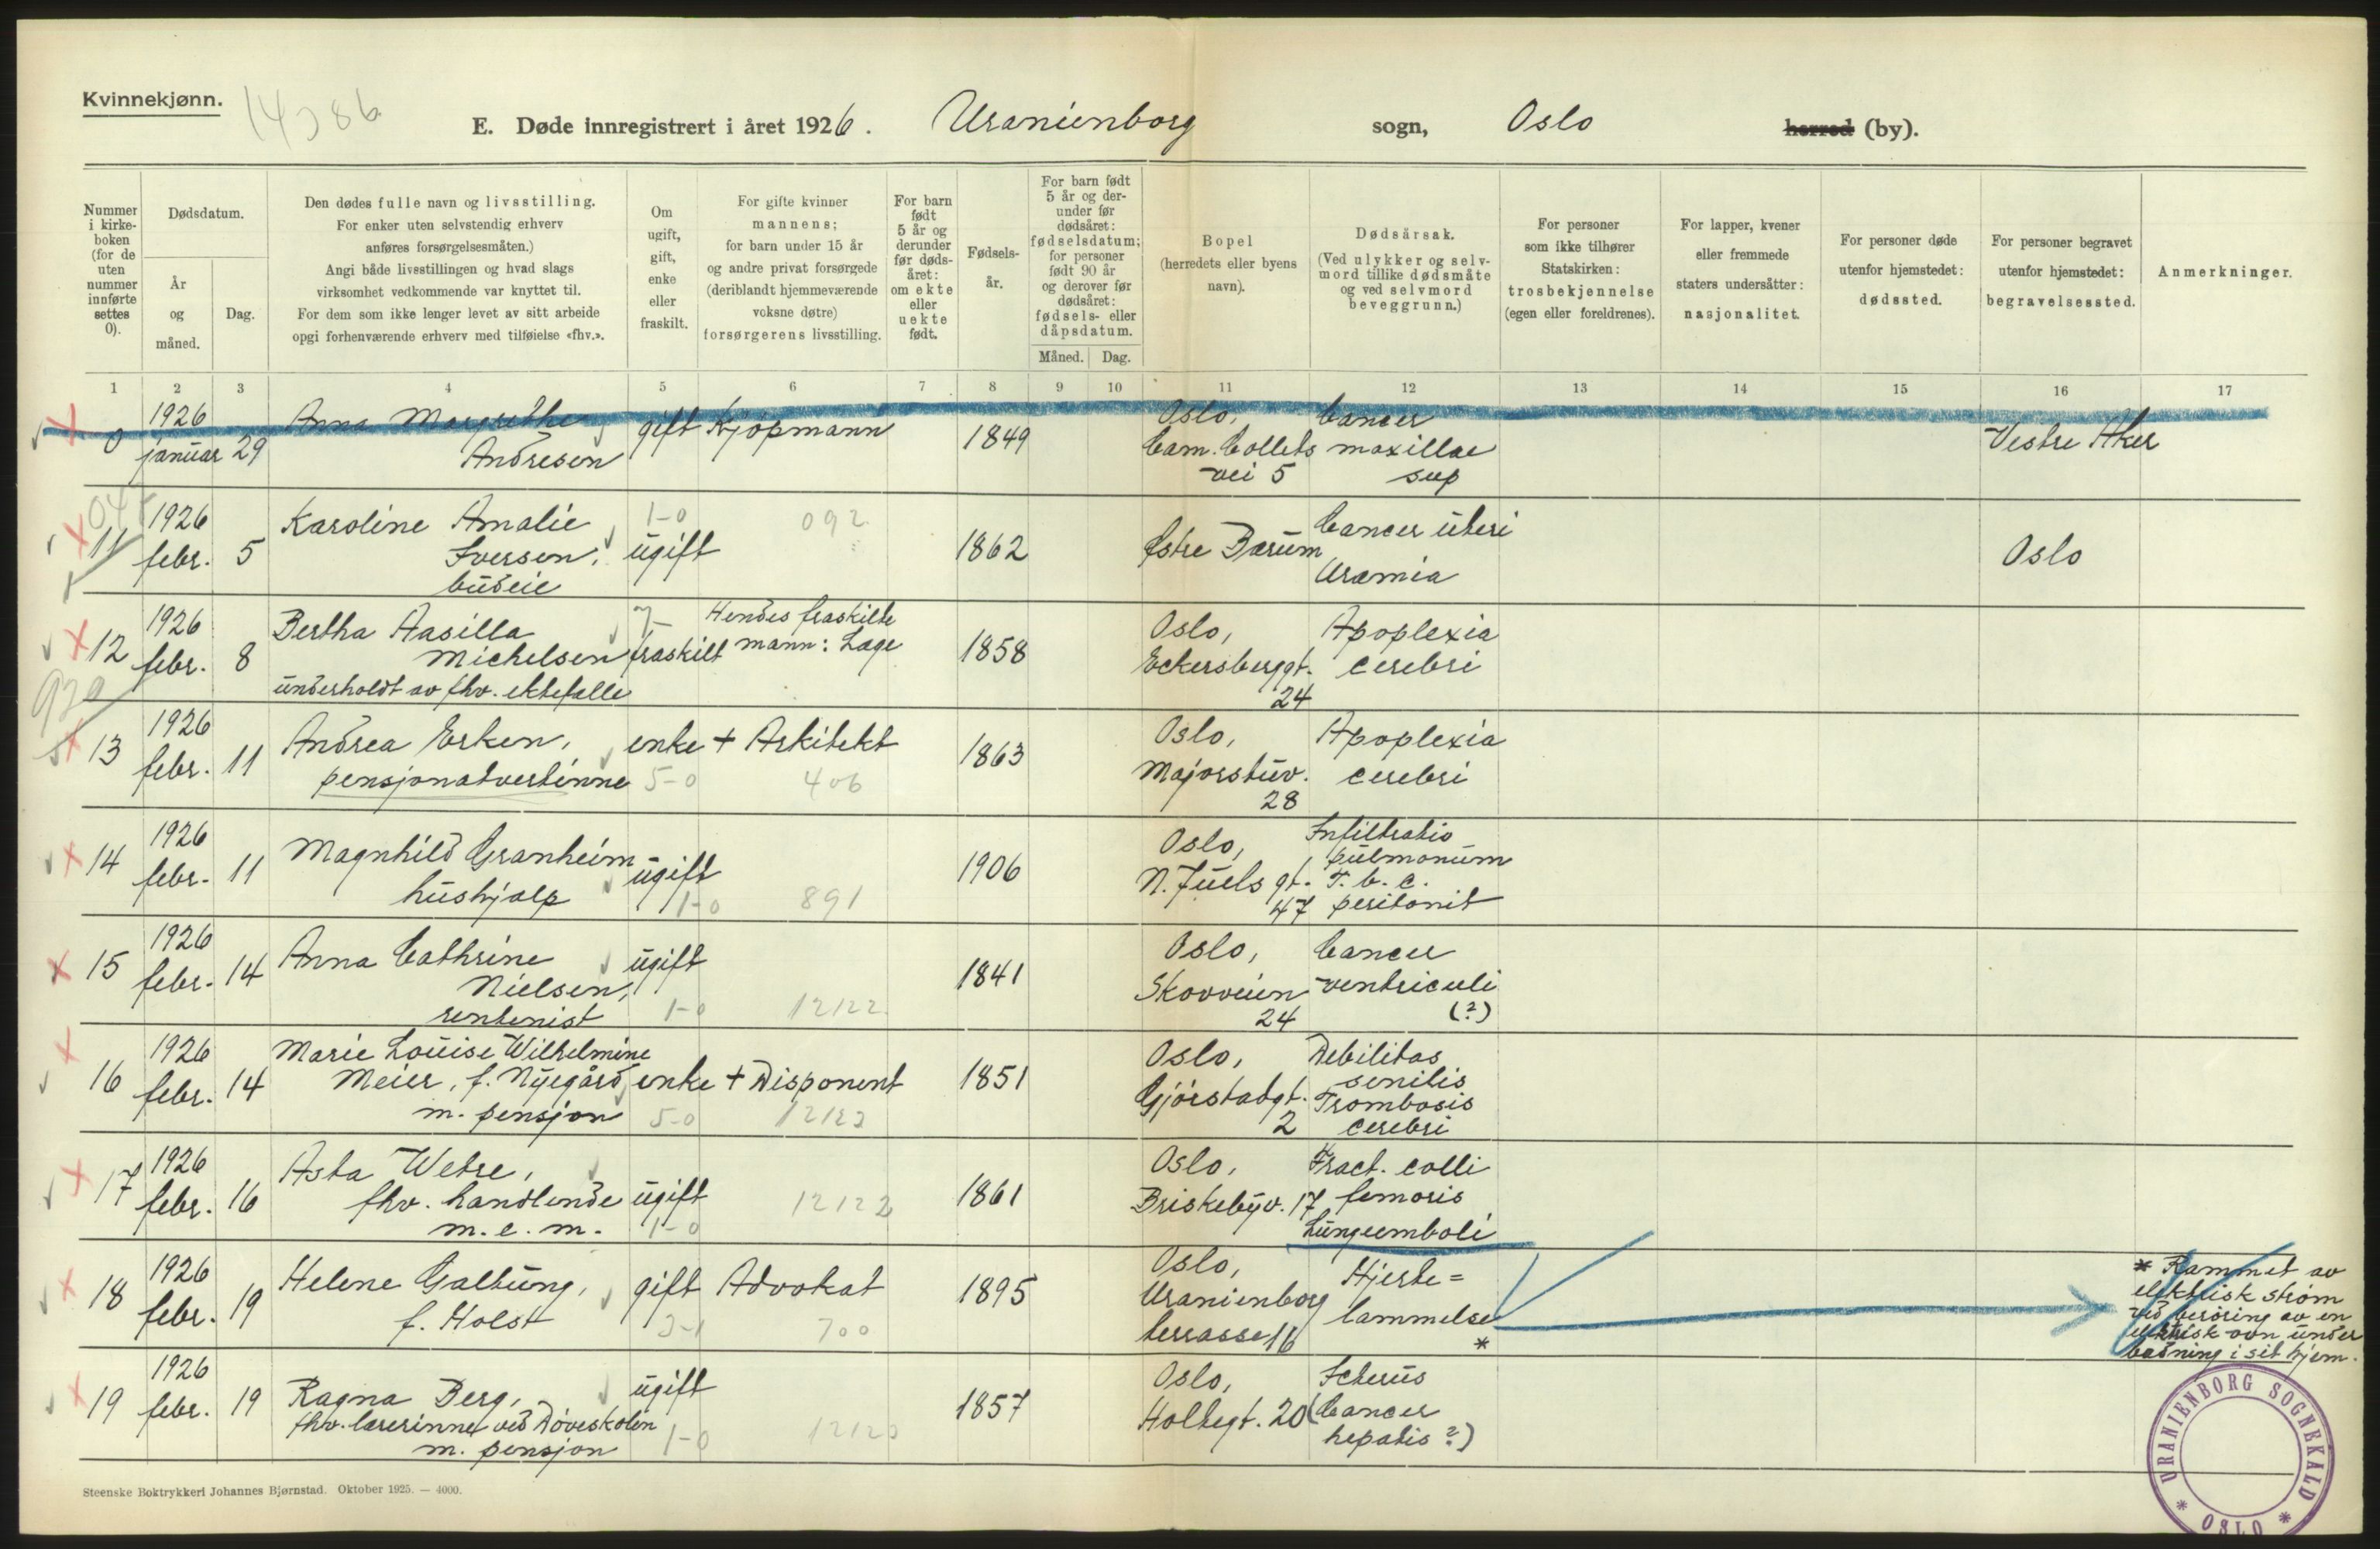 Kvinnekjønn.
E. Døde innregistrert i året 1926. Uranienborg sogn, Oslo herred (by).
Nummer i kirke-boken (for de uten nummer innførte settes 0).
Dødsdatum.
År og måned.
Dag.
Den dødes fulle navn og livsstilling.
For enker uten selvstendig erhverv
anføres forsørgelsesmåten.)
Angi både livsstillingen og hvad slags
virksomhet vedkommende var knyttet til.
For dem som ikke lenger levet av sitt arbeide
opgi forhenværende erhverv med tilføielse «fhv.».
Om ugift, gift, enke eller fraskilt.
For gifte kvinner
mannens;
for barn under 15 år
og andre privat forsørgede
(deriblandt hjemmeværende
voksne døtre)
forsørgerens livsstilling.
For barn født 5 år og derunder før døds-året: om ekte eller uekte født.
Fødsels-år.
For barn født 5 år og der-under før dødsåret: fødselsdatum; for personer født 90 år og derover før dødsåret: fødsels- eller dåpsdatum.
Måned. Dag.
Bopel
(herredets eller byens
navn).
Dødsårsak.
(Ved ulykker og selv-
mord tillike dødsmåte
og ved selvmord
beveggrunn.)
For personer
som ikke tilhører
Statskirken:
trosbekjennelse
(egen eller foreldrenes).
For lapper, kvener
eller fremmede
staters undersåtter:
nasjonalitet.
For personer døde
utenfor hjemstedet:
dødssted.
For personer begravet
utenfor hjemstedet:
begravelsessted.
Anmerkninger.
1 2 3 4 5 6 7 8 9 10 11 12 13 14 15 16 17
0 1926 januar 29 Anna Margrethe Andresen gift Kjøpmann 1849 Oslo, Cam. Colletts vei 5 Cancer maxillae sup Vestre Aker
11 1926 febr. 5 Karoline Amalie Iversen, budeie 1-0 ugift 092 1862 Østre Bærum Cancer uteri Uræmia Oslo
12 1926 febr. 8 Bertha Aasilla Michelsen underholdt av fhv. ektefelle fraskilt Hendes fraskilte mann: Læge 1858 Oslo, Eckersberggt. 24 Apoplexia cerebri
13 1926 febr. 11 Andrea Erken, pensjonatvertinne enke 5-0 + Arkitekt 406 1863 Oslo, Majorstuv. 28 Apoplexia cerebri
14 1926 febr. 11 Magnhild Granheim hushjelp ugift 1-0 891 1906 Oslo, N. Juels gt. 47 Infiltratio pulmonum T. b. c. peritonit
15 1926 febr. 14 Anna Cathrine Nielsen, rentenist ugift 1-0 12122 1841 Oslo, Skovveien 24 Cancer ventriculi (?)
16 1926 febr. 14 Marie Louise Wilhelmine Meier, f. Nyegård m. pensjon enke 5-0 + Disponent 12122 1851 Oslo, Gjørstadgt. 2 Debilitas senilis Trombosis cerebri
17 1926 febr. 16 Asta Wetre, fhv. handlende m. e. m. ugift 1-0 12122 1861 Oslo, Briskebyv. 17 Fract. colli femoris Lungeemboli
18 1926 febr. 19 Helene Galtung, f. Holst gift Advokat 700 1895 Oslo, Uranienborg terrasse 16 Hjerte= lammelse *
* Rammet av
elektrisk strøm
ved berøring av en
elektrisk ovn under
badning i sit hjem.
19 1926 febr. 19 Ragna Berg, fhv. lærerinne ved Døveskolen m. pensjon ugift 1-0 1857 Oslo, Holtegt. 20 Icterus (Cancer hepatis ?)
Steenske Boktrykkeri Johannes Bjørnstad. Oktober 1925. — 4000.
URANIENBORG SOGNEKALD * OSLO *